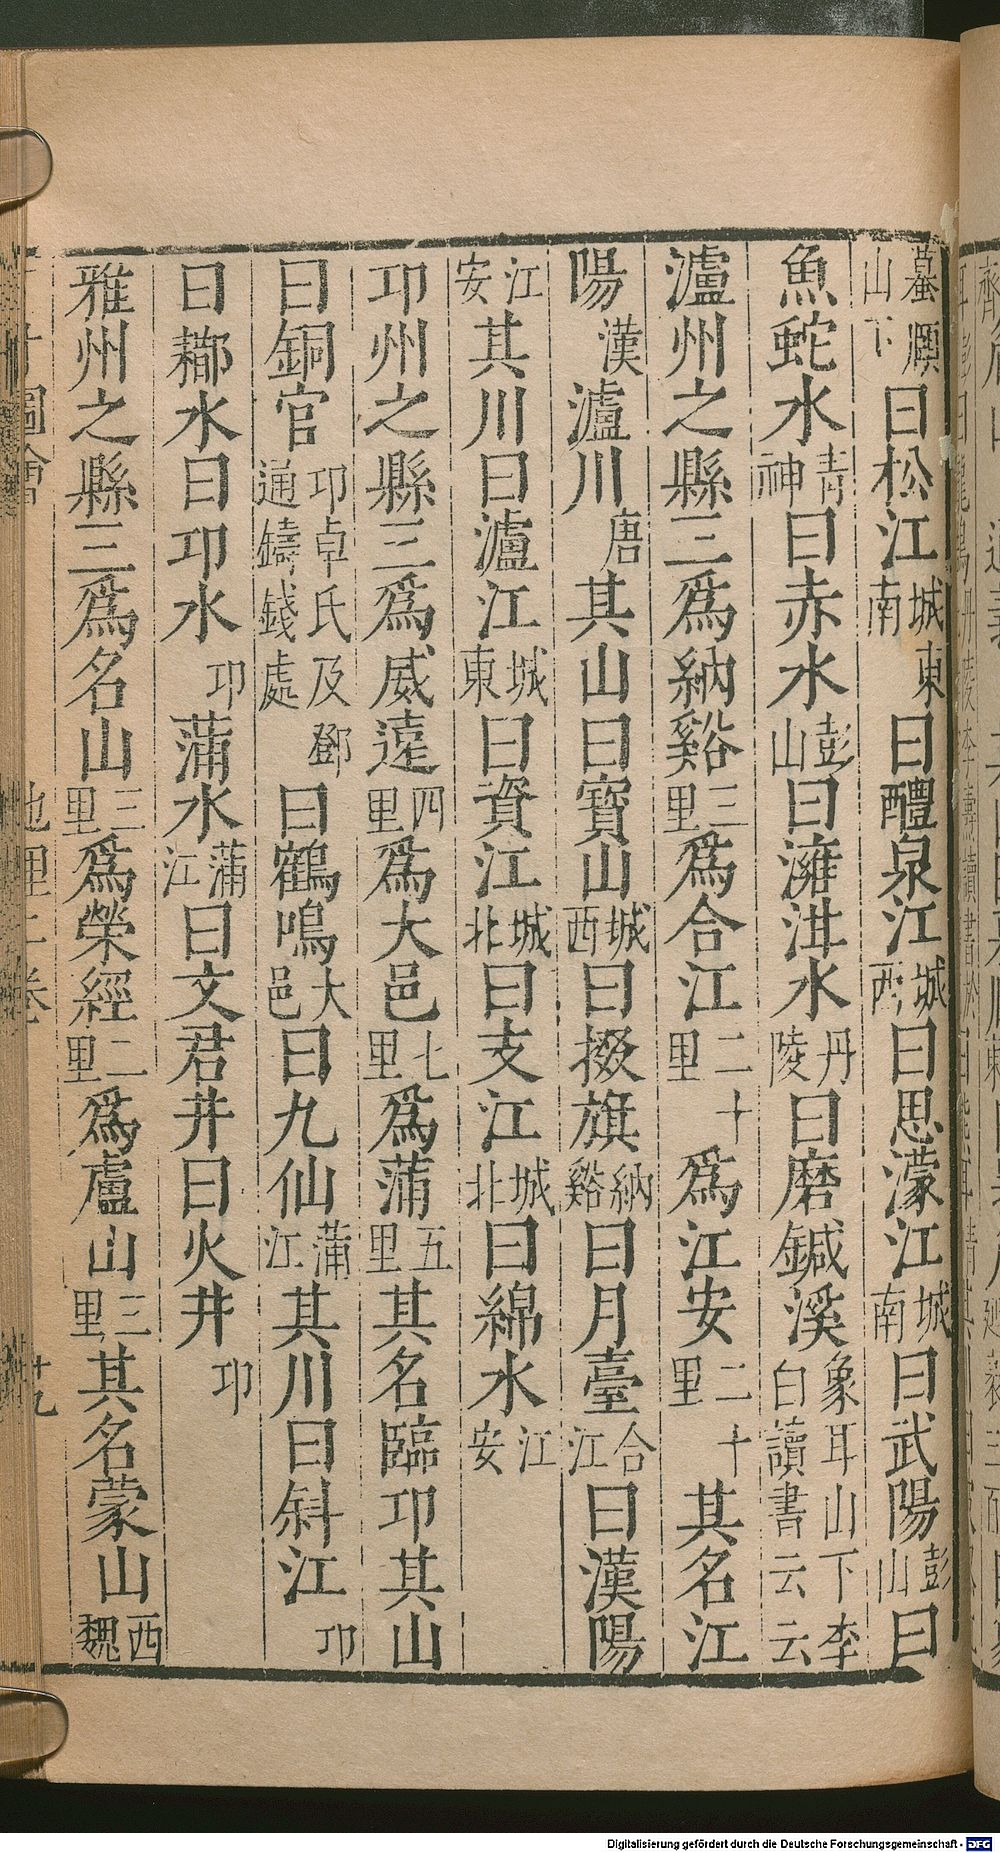 蟇頤山下曰松江城東南曰醴泉江城西曰思濛江城南曰武陽彭山曰
魚蛇水青神曰赤水彭山曰灉渳水丹陵曰磨鍼溪象耳山下李白讀書云云
瀘州之縣三為納谿三里為合江二十里為江安二十里其名江
陽漢瀘川唐其山曰寶山城西曰掇旗納谿曰月臺合江曰漢陽
江安其川曰瀘江城東曰資江城北曰支江城北曰綿水江安
邛州之縣三為威遠四里為大邑七里為蒲五里其名臨邛其山
曰銅官邛卓氏及鄧通鑄錢處曰鶴鳴大邑曰九仙蒲江其川曰斜江邛
曰𨞪水曰邛水邛蒲水蒲江曰文君井曰火井邛
雅州之縣三為名山三里為榮經二里為廬山三里其名蒙山西魏
圖會
地理二卷
廿九
Digitalisierung gefördert durch die Deutsche Forschungsgemeinschaft - DFG